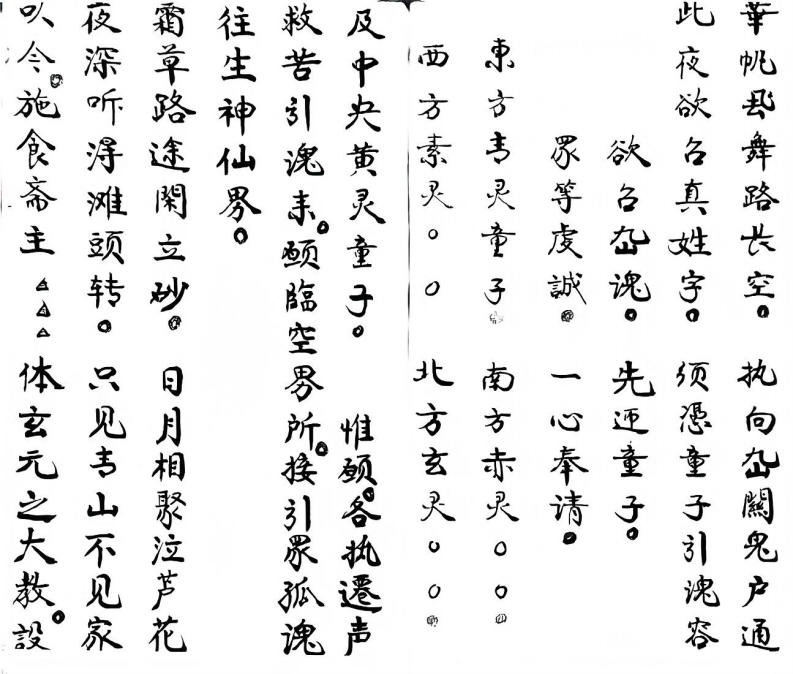 華帆飛舞路長空。 执向幽關鬼户通
此夜欲召真姓字。 须憑童子引魂容
欲召幽魂。 先迎童子。
眾等虔誠。 一心奉请。
東方青灵童子。 南方赤灵〇〇。
西方素灵〇〇 北方玄灵〇〇。
及中央黄灵童子。 惟願。各执遷声
救苦引魂来。願臨空界所。接引眾孤魂
往生神仙界。
霜草路途閑立砂。 日月相聚泣芦花
夜深听浔滩頭转。 只见青山不见家
以今。施食斋主△△△ 体玄元之大教。設